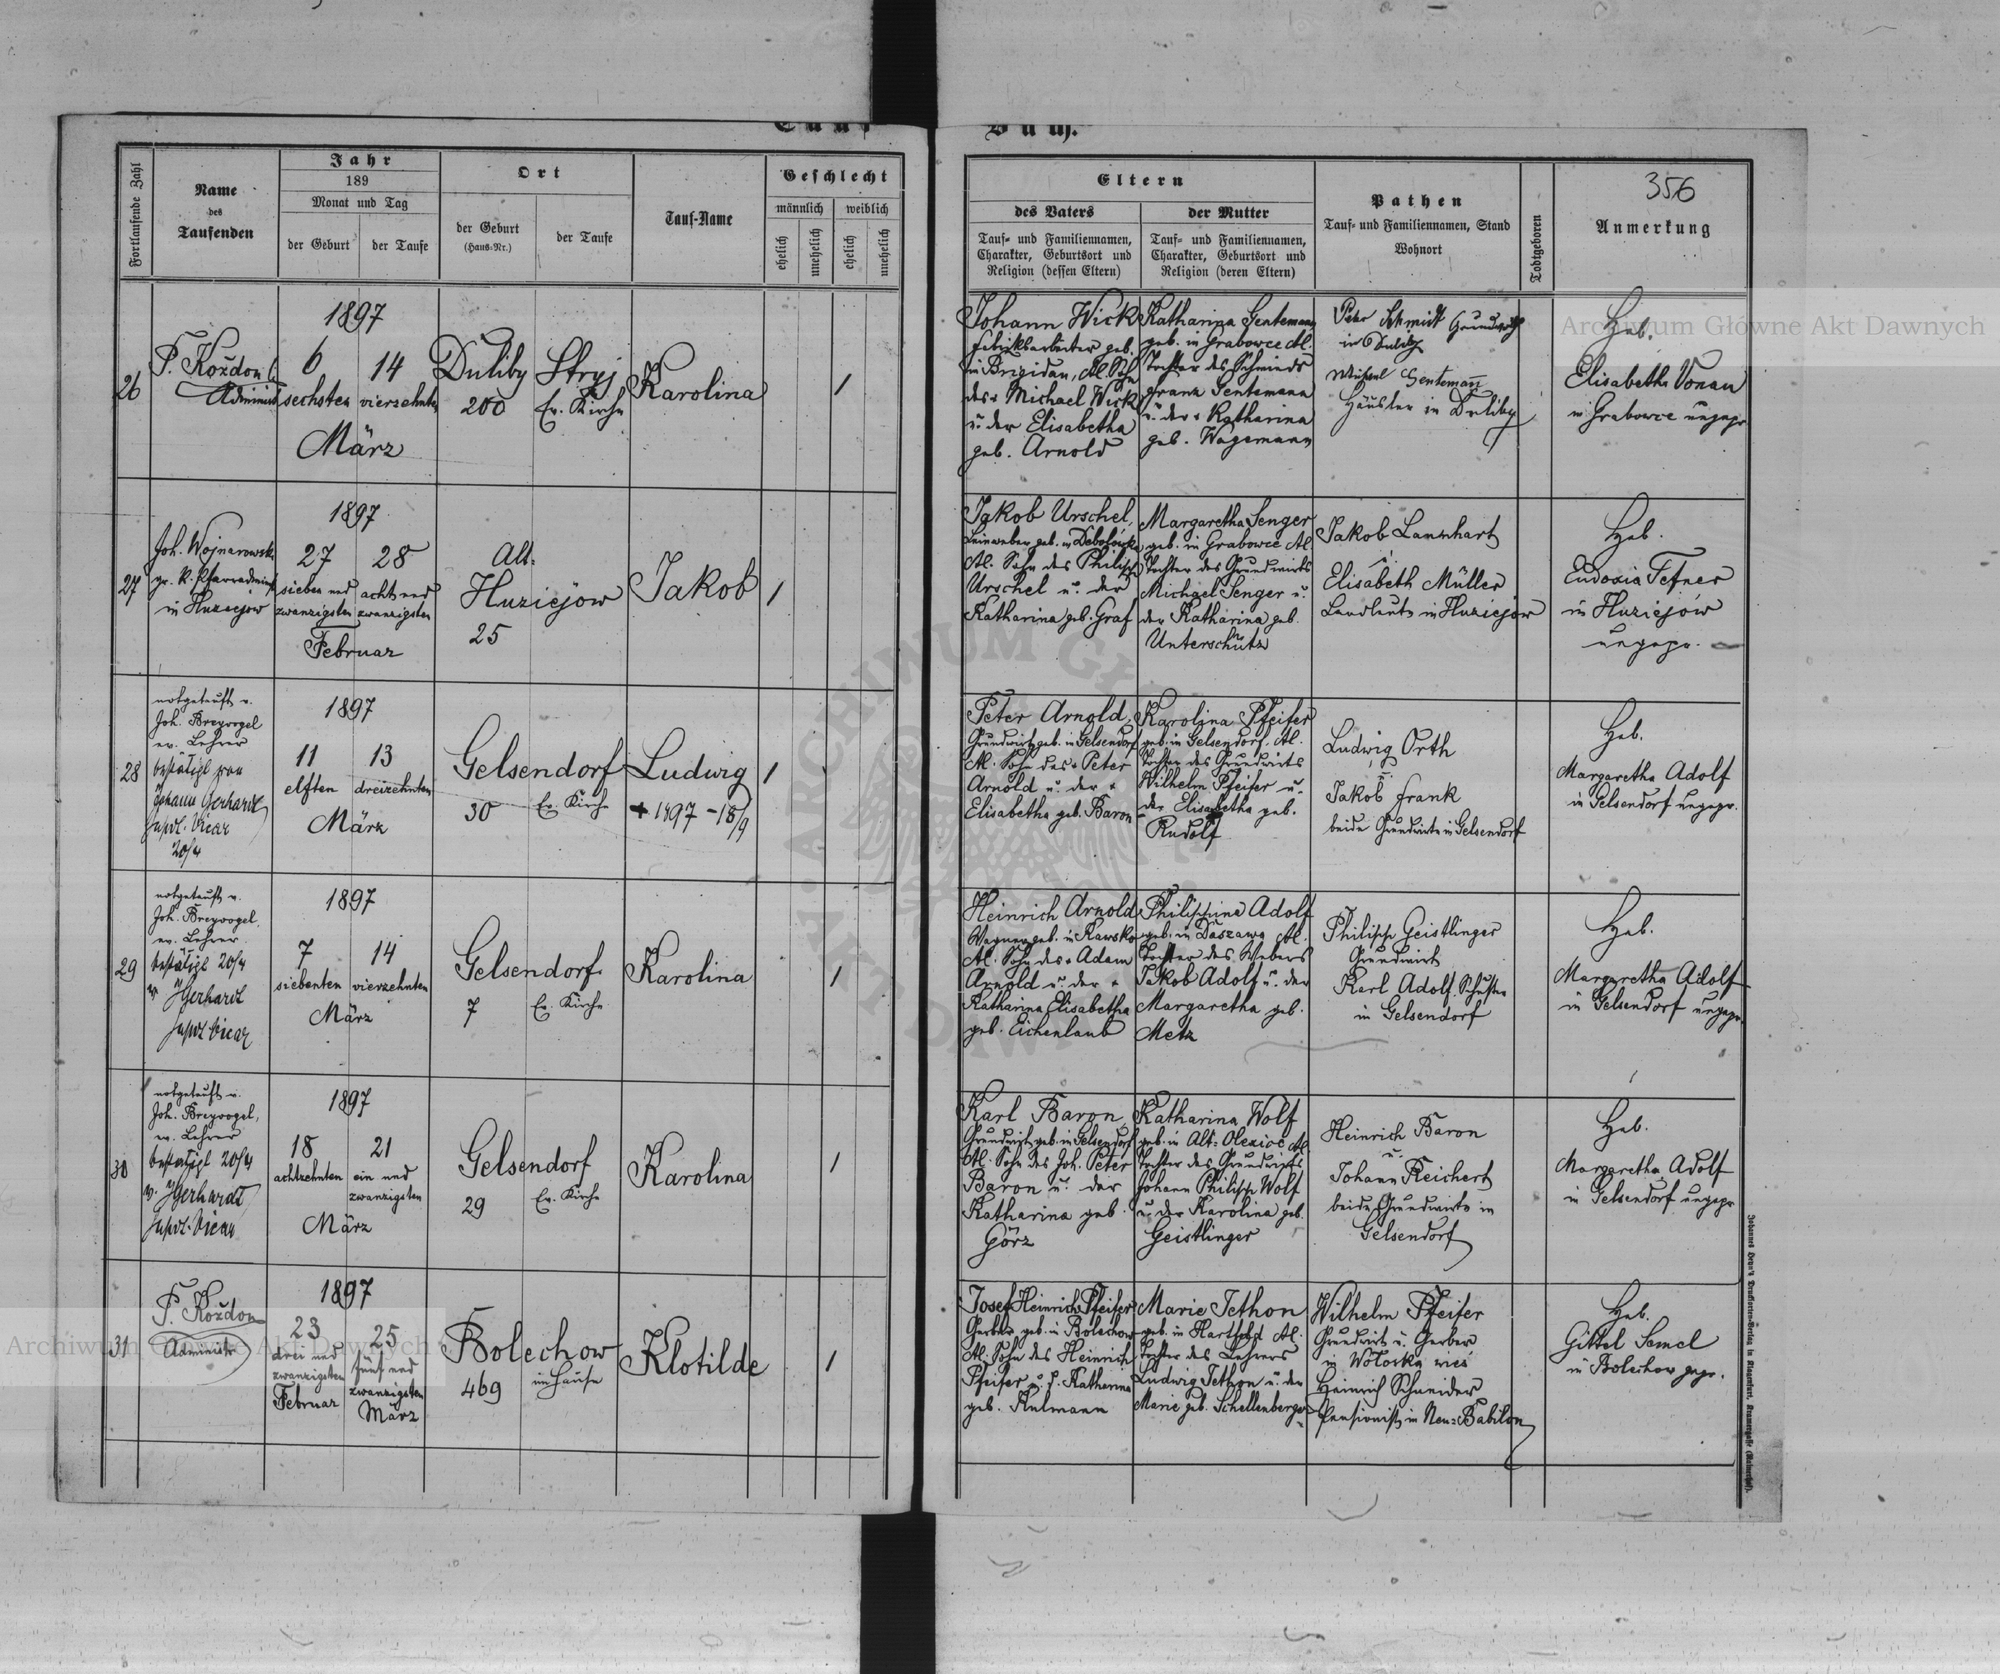 Tauf Buch.
356
Fortlaufende Zahl
Name
des
Taufenden
Jahr
189
Monat und Tag
der Geburt
der Taufe
Ort
der Geburt
(Haus-Nr.)
der Taufe
Tauf-Name
Geschlecht
männlich
weiblich
ehelich
unehelich
ehelich
unehelich
Eltern
des Vaters
Tauf- und Familiennamen,
Charakter, Geburtsort und
Religion (dessen Eltern)
der Mutter
Tauf- und Familiennamen,
Charakter, Geburtsort und
Religion (deren Eltern)
Pathen
Tauf- und Familiennamen, Stand
Wohnort
Todtgeboren
Anmerkung
26
P. Koždon
Administ.
1897
6
sechsten
14
vierzehnten
März
Duliby
200
Stryj
Ev. Kirche
Karolina
1
Johann Wick
Fabiksarbeiter geb.
in Brigidau, AC. Sohn
des + Michael Wick
u. der Elisabetha
geb. Arnold
Katharina Gentemann
geb. in Grabowce AC.
Tochter des Schmieds
Franz Gentemann
u. der + Katharina
geb. Wagemann
Peter Schmidt Grundwirth
in Duliby
Michael Gentemann
Häusler in Duliby
Heb.
Elisabetha Vonau
in Grabowce ungepr.
27
Joh. Wojnarowski
gr. k. Pfarradminist
in Huziejow
1897
27
sieben und
zwanzigsten
28
acht und
zwanzigsten
Februar
Alt-
Huziejow
25
Jakob
1
Jakob Urschel,
Leinweber geb. in Debolówka
AC. Sohn des Philipp
Urschel u. der
Katharina geb. Graf
Margaretha Senger
geb. in Grabowce AC.
Tochter des Grundwirts
Michael Senger u.
der Katharina geb.
Unterschütz
Jakob Lanzhart
u.
Elisabeth Müller
Landleute in Huziejow
Heb.
Eudoxia Fefner
in Huziejów
ungepr.
28
notgetauft v.
Joh. Breyvogel
ev. Lehrer
bestätigt von
Johann Gerhardt
supdl. Vicar
20/4
1897
11
elften
13
dreizehnten
März
Gelsendorf
30
Ev. Kirche
Ludwig
+ 1897 - 18/9
1
Peter Arnold,
Grundwirt geb. in Gelsendorf
AC. Sohn des + Peter
Arnold u. der +
Elisabetha geb. Baron
Karolina Pfeifer
geb. in Gelsendorf. AC.
Tochter des Grundwirts
Wilhelm Pfeifer u.
der Elisabetha geb.
Rudolf
Ludwig Orth
u.
Jakob Frank
beide Grundwirte in Gelsendorf
Heb.
Margaretha Adolf
in Gelsendorf ungepr.
29
notgetauft v.
Joh. Breyvogel,
ev. Lehrer
bestätigt 20/4
v. JGerhardt
supdl. Vicar
1897
7
siebenten
14
vierzehnten
März
Gelsendorf
7
Ev. Kirche
Karolina
1
Heinrich Arnold
Wagner geb. in Kawsko
AC. Sohn des + Adam
Arnold u. der +
Katharina Elisabetha
geb. Eichenlaub
Philippine Adolf
geb. in Daszawa AC.
Tochter des Webers
Jakob Adolf u. der
Margaretha geb.
Metz
Philipp Geistlinger
Grundwirt
Karl Adolf, Schuster
in Gelsendorf
Heb.
Margaretha Adolf
in Gelsendorf ungepr.
30
notgetauft v.
Joh. Breyvogel,
ev. Lehrer
bestätigt 20/4
v. JGerhardt
supdl. Vicar
1897
18
achtzehnten
21
ein und
zwanzigsten
März
Gelsendorf
29
Ev. Kirche
Karolina
1
Karl Baron,
Grundwirt geb. in Gelsendorf
AC. Sohn des Joh. Peter
Baron u. der
Katharina geb.
Görz
Katharina Wolf
geb. in Alt-Olexice AC.
Tochter des Grundwirts
Johann Philipp Wolf
u. der Karolina geb.
Geistlinger
Heinrich Baron
u.
Johann Reichert
beide Grundwirte in
Gelsendorf
Heb.
Margaretha Adolf
in Gelsendorf ungepr
31
P. Koždon
Administr
1897
23
drei und
zwanzigsten
Februar
25
fünf und
zwanzigsten
März
Bolechow
469
im Hause
Klotilde
1
Josef Heinrich Pfeifer
Gerber geb. in Bolechow
AC. Sohn des Heinrich
Pfeifer u. d. Katharina
geb. Kulmann
Marie Jethon
geb. in Hartfeld AC.
Tochter des Lehrers
Ludwig Jethon u. der
Marie geb. Schellenberger
Wilhelm Pfeifer
Grundwirt u. Gerber
in Wołoska wieś
Heinrich Schneider
Pensionist in Neu-Babilon
Heb.
Gittel Semel
in Bolechow gepr.
Archiwum Główne Akt Dawnych
Archiwum Główne Akt Dawnych